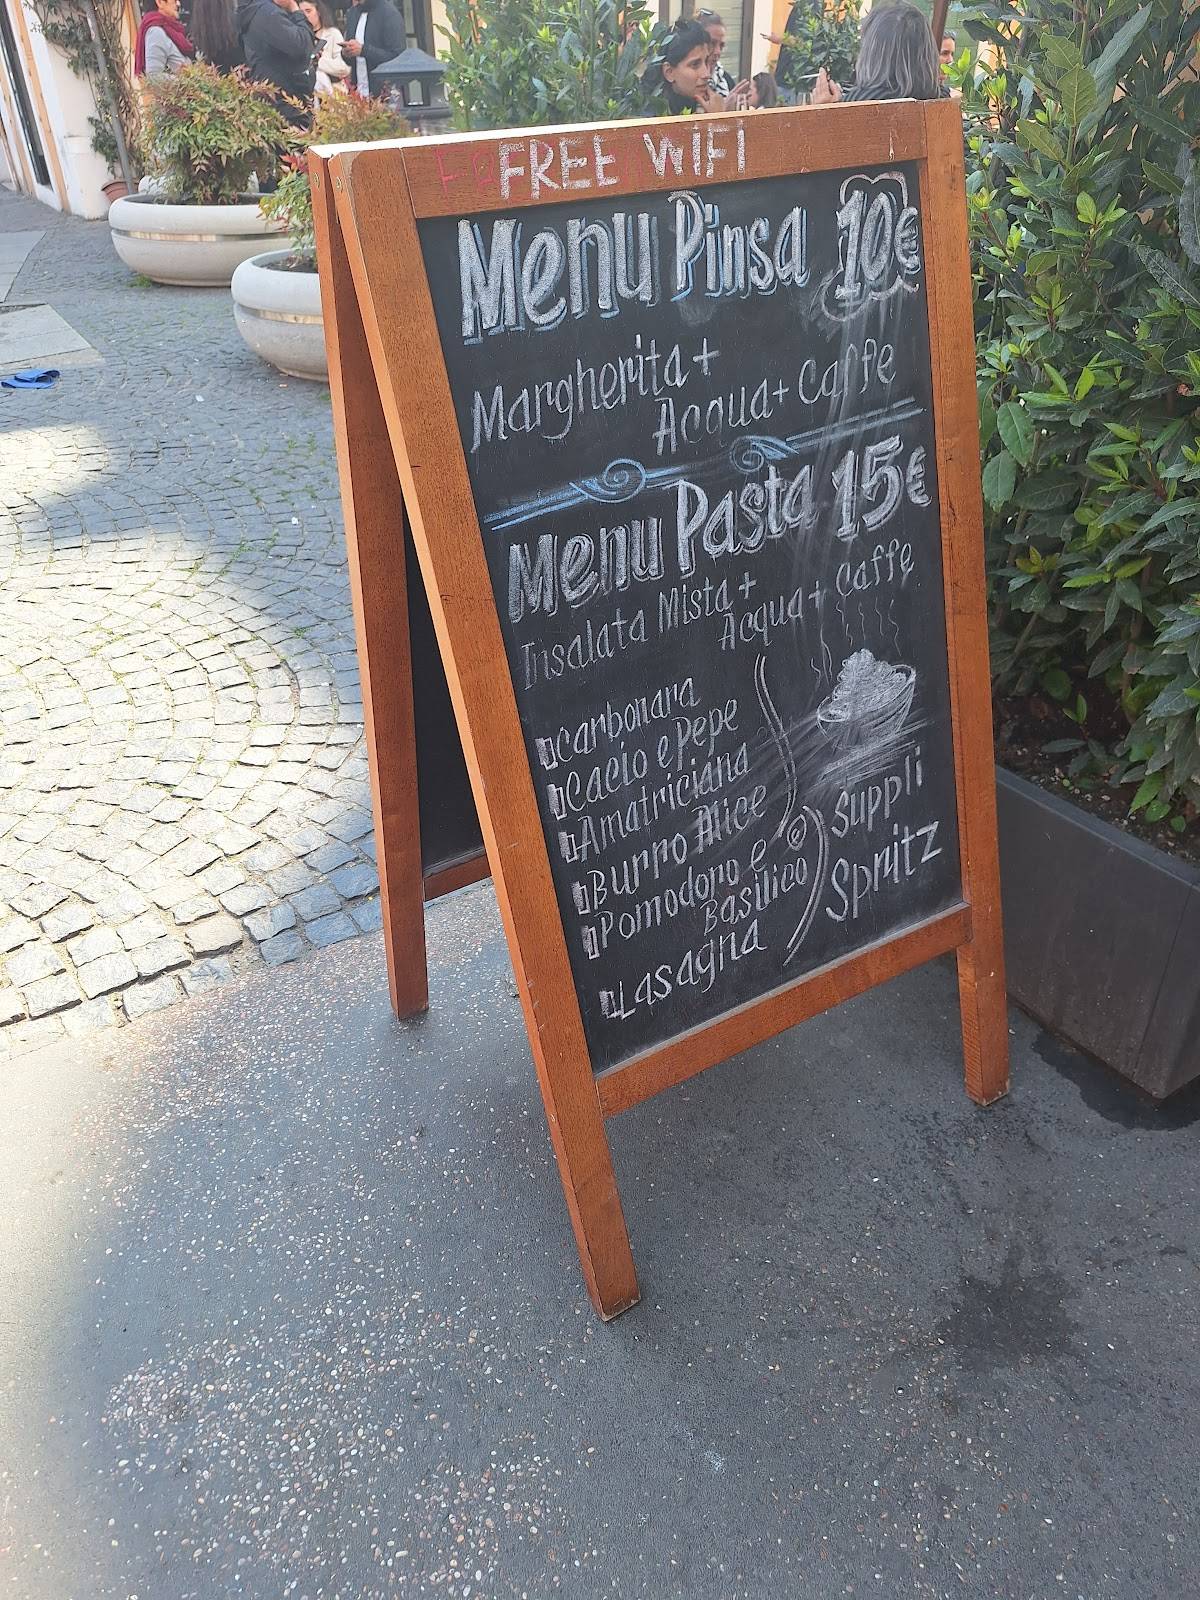 FREE WIFI
Menu Pinsa 10€
Margherita +
Acqua + Caffe
Menu Pasta 15€
Insalata Mista +
Acqua + Caffe
Carbonara
Cacio e Pepe
Amatriciana
Burro Alice
Pomodoro e
Basilico
Lasagna
Suppli
Spritz